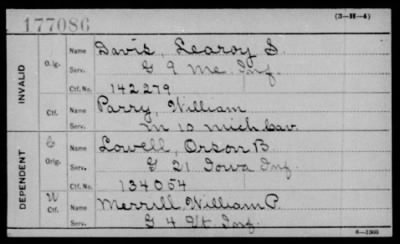 177086
(3-H-4)
INVALID
Orig.
Name Davis, Learoy S.
Serv. G 9 Me. Inf.
Ctf. No. 142279
Ctf.
Name Parry, William
Serv. M 10 Mich Cav.
DEPENDENT
C
Orig.
Name Lowell, Orson B
Serv. G 21 Iowa Inf.
Ctf. No. 134054
W
Ctf.
Name Merrill, William P.
Serv. G 4 Vt. Inf.